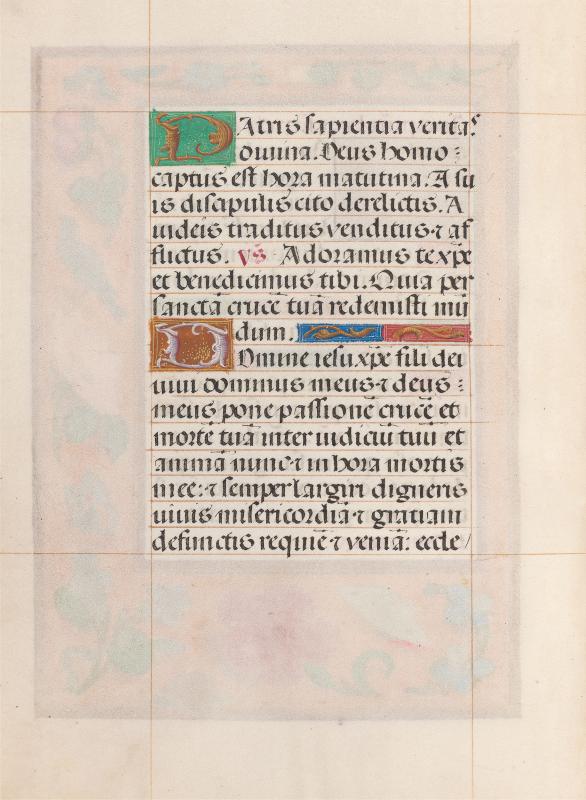 Patris sapientia veritaˢ
divina. Deus homo :
captus est hora matutina. A su
is discipulis cito derelictis. A
iudeis traditus venditus ⁊ af
flictus. vs̄ Adoramus te xp̄e
et benedicimus tibi. Quia per
sanctā crucē tuā redemisti mū
dum.
Domine iesu xp̄e fili dei
vivi dominus meus ⁊ deus :
meus pone passionē crucē et
mortē tuā inter iudiciū tuū et
animā nunc ⁊ in hora mortis
mee: ⁊ semper largiri digneris
vivis misericordiā ⁊ gratiam
defunctis requiē ⁊ veniā: eccle/